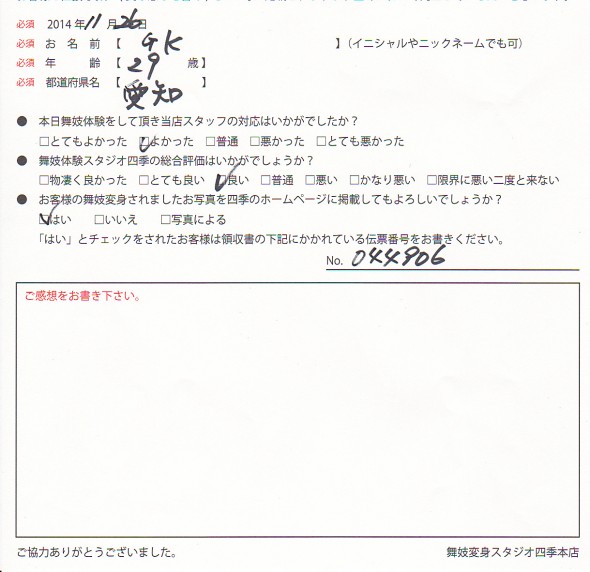 必須 2014年11月26日
必須 お名前【 GK 】(イニシャルやニックネームでも可)
必須 年 齢【 29 歳】
必須 都道府県名【 愛知 】
● 本日舞妓体験をして頂き当店スタッフの対応はいかがでしたか？
□とてもよかった ☑よかった □普通 □悪かった □とても悪かった
● 舞妓体験スタジオ四季の総合評価はいかがでしょうか？
□物凄く良かった □とても良い ☑良い □普通 □悪い □かなり悪い □限界に悪い二度と来ない
● お客様の舞妓変身されましたお写真を四季のホームページに掲載してもよろしいでしょうか？
☑はい □いいえ □写真による
「はい」とチェックをされたお客様は領収書の下記にかかれている伝票番号をお書きください。
No. 044906
ご感想をお書き下さい。
ご協力ありがとうございました。 舞妓変身スタジオ四季本店